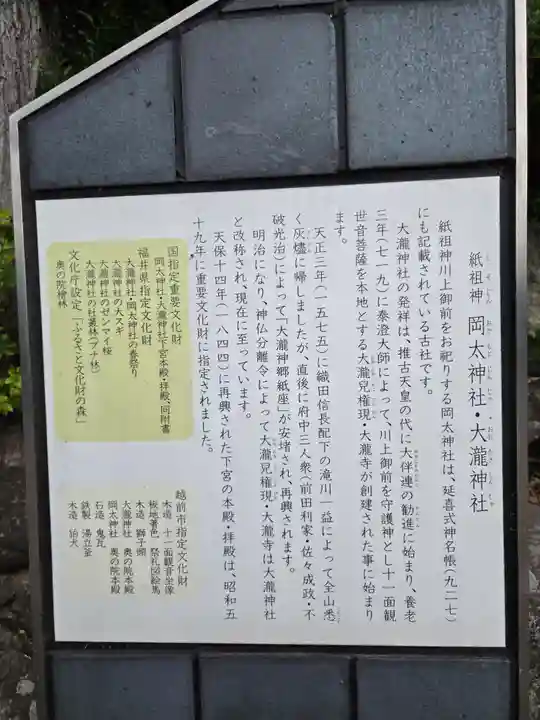 紙祖神 岡太神社・大瀧神社
紙祖神川上御前をお祀りする岡太神社は、延喜式神名帳(九二七)
にも記載されている古社です。
大瀧神社の発祥は、推古天皇の代に大伴連の勧進に始まり、養老
三年(七一九)に泰澄大師によって、川上御前を守護神とし十一面観
世音菩薩を本地とする大瀧兒権現・大瀧寺が創建された事に始まり
ます。
天正三年(一五七五)に織田信長配下の滝川一益によって全山悉
く灰燼に帰しましたが、直後に府中三人衆(前田利家・佐々成政・不
破光治)によって「大瀧神郷紙座」が安堵され、再興されます。
明治になり、神仏分離令によって大瀧兒権現・大瀧寺は大瀧神社
と改称され、現在に至っています。
天保十四年(一八四四)に再興された下宮の本殿・拝殿は、昭和五
十九年に重要文化財に指定されました。
国指定重要文化財
岡太神社・大瀧神社下宮本殿・拝殿、同附書
福井県指定文化財
大瀧神社・岡太神社の春祭り
大瀧神社の大スギ
大瀧神社のゼンマイ桜
大瀧神社の社叢林(ブナ林)
文化庁設定「ふるさと文化財の森」
奥の院檜林
越前市指定文化財
木造 十一面観音坐像
板地著色 祭礼図絵馬
木造 獅子頭
大瀧神社 奥の院本殿
岡太神社 奥の院本殿
石造 鬼瓦
鉄製 湯立釜
木造 狛犬